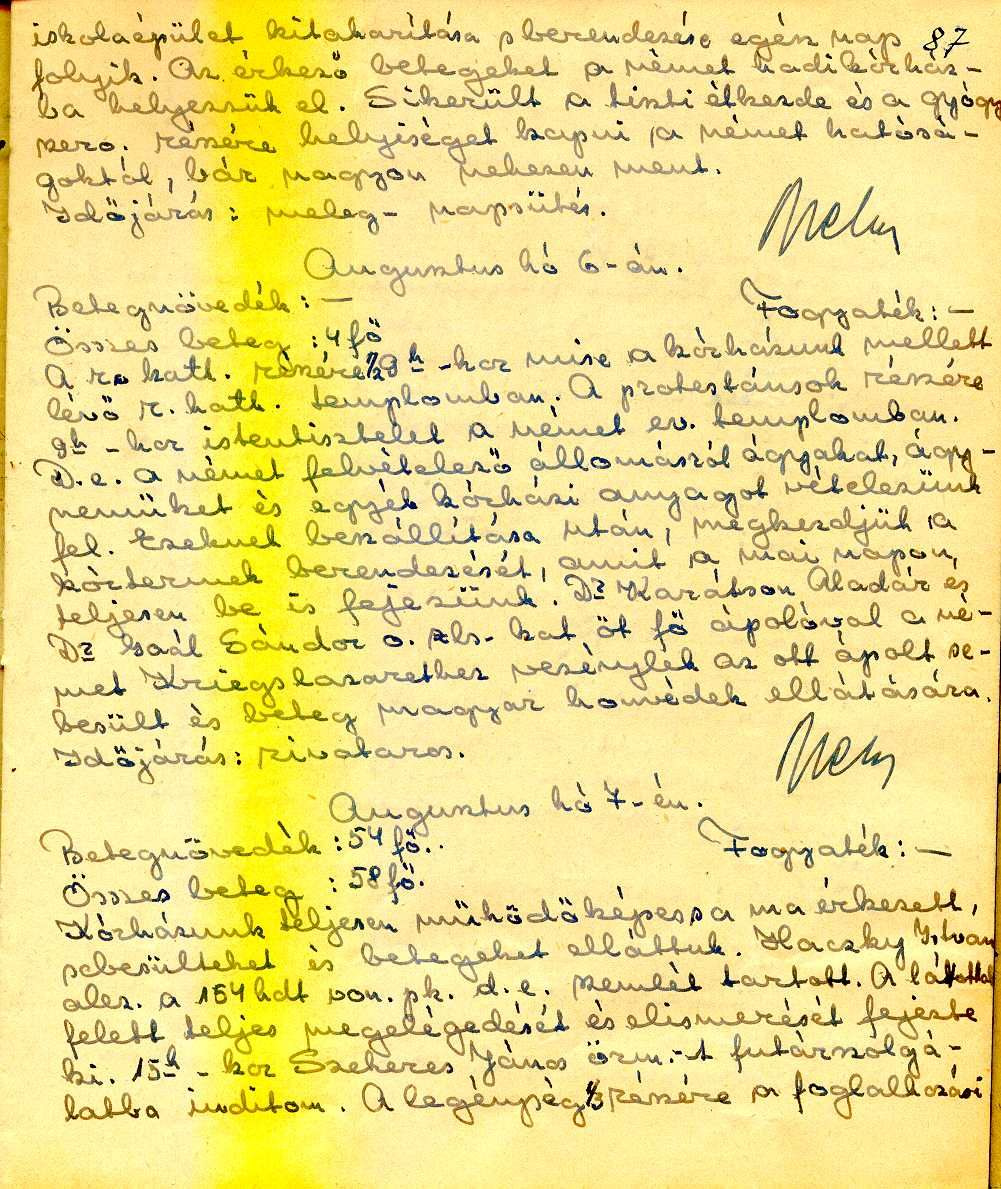 iskolaépület kitakarítása s berendezése egész nap 87
folyik. Az érkező betegeket a német hadikórház-
ba helyezzük el. Sikerült a tiszti étkezde és a gyógy
szero. részére helyiséget kapni a német hatósá-
goktól, bár nagyon nehezen ment.
Időjárás: meleg- napsütés.
Augusztus hó 6-án.
Betegnövedék: — Fogyaték: —
Összes beteg: 4 fő
A r. kath. részére 1/2 9h-kor mise a kórházunk mellett
lévő r. kath. templomban. A protestánsok részére
9h-kor istentisztelet a német ev. templomban.
D.e. a német felvételező állomásról ágyakat, ágy-
neműket és egyéb kórházi anyagot vételezünk
fel. Ezeknek beszállítása után, megkezdjük a
kórtermek berendezését, amit a mai napon,
teljesen be is fejezünk. Dr Karátson Aladár és
Dr Gaál Sándor o. zls-kat öt fő ápolóval a né-
met Kriegslazarethez vezénylek az ott ápolt se-
besült és beteg magyar honvédek ellátására.
Időjárás: zivataros.
Augusztus hó 7-én.
Betegnövedék: 54 fő.. Fogyaték: —
Összes beteg: 58 fő.
Kórházunk teljesen működőképes s a ma érkezett,
sebesülteket és betegeket elláttuk. Haczky István
alez. a 154 hdt von. pk. d.e. szemlét tartott. A látottak
felett teljes megelégedését és elismerését fejezte
ki. 15h-kor Szekeres János őrm.-t futárszolgá-
latba indítom. A legénység 1/3 részére a foglalkozási